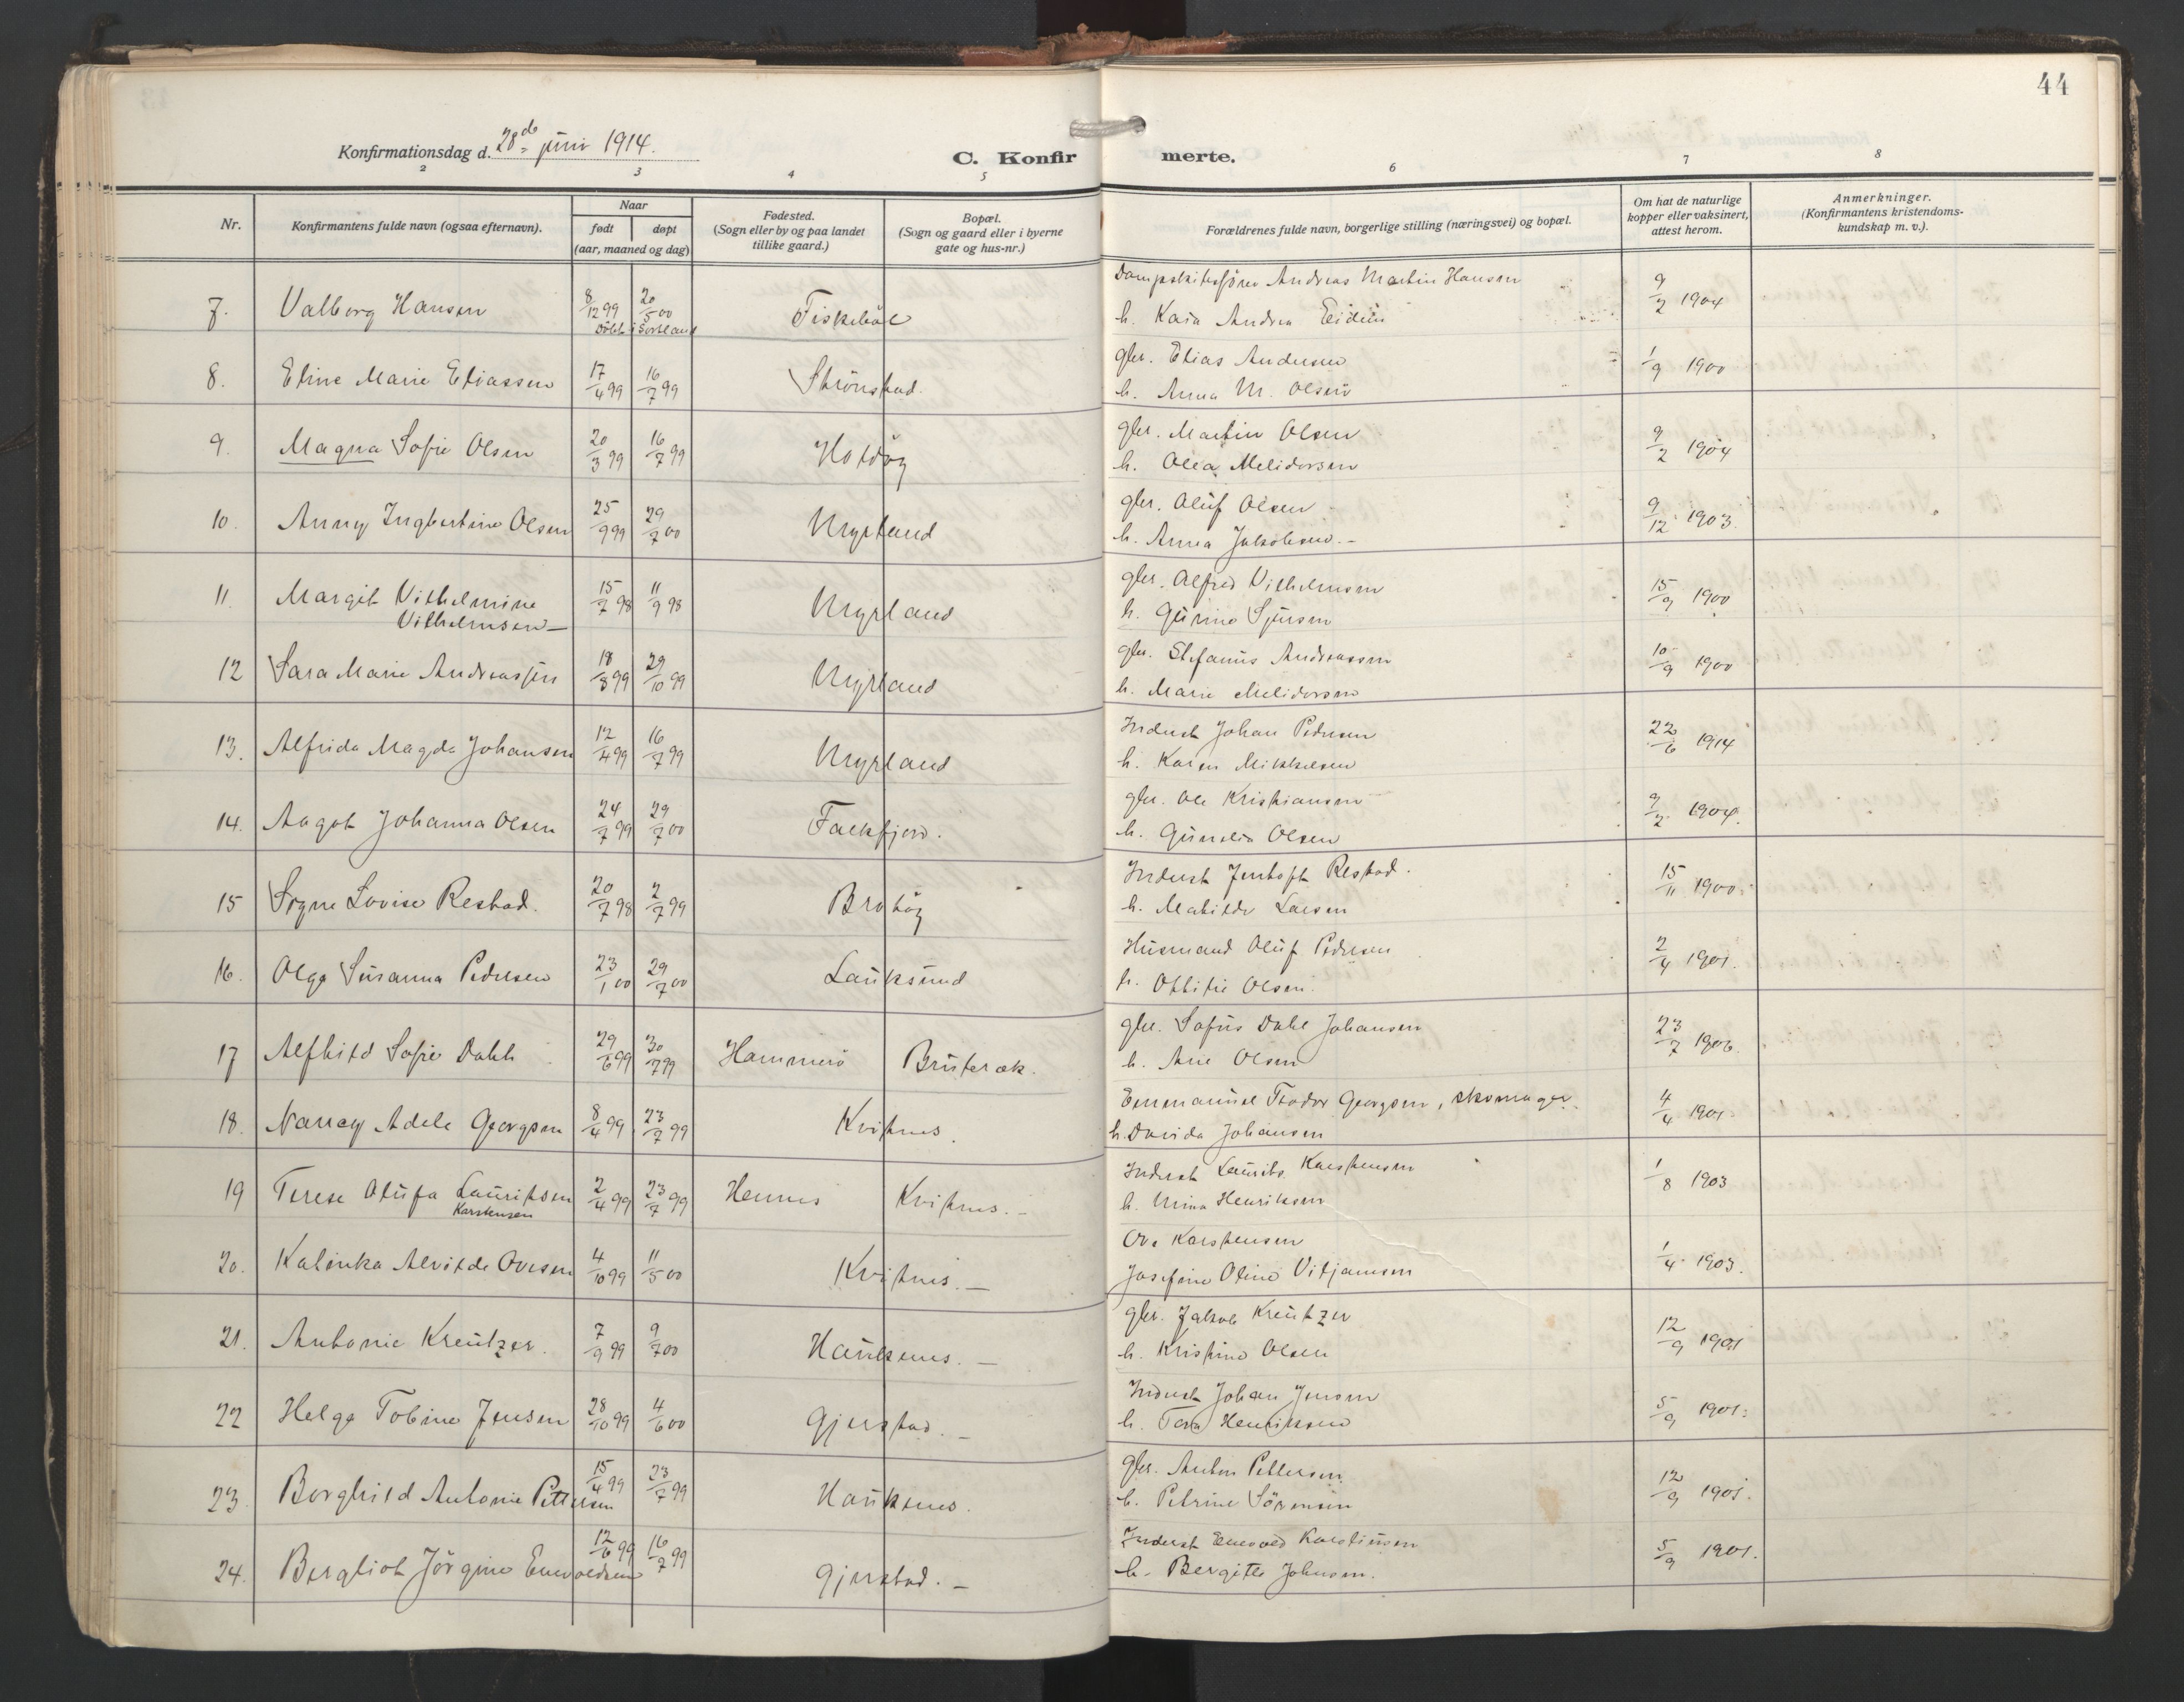 44
Konfirmationsdag d. 28de juni 1914.
C. Konfirmerte.
2 3 4 5 6 7 8
Nr.
Konfirmantens fulde navn (ogsaa efternavn).
Naar
født døpt
(aar, maaned og dag)
Fødested.
(Sogn eller by og paa landet
tillike gaard.)
Bopæl.
(Sogn og gaard eller i byerne
gate og hus-nr.)
Forældrenes fulde navn, borgerlige stilling (næringsvei) og bopæl.
Om hat de naturlige
kopper eller vaksinert,
attest herom.
Anmerkninger.
(Konfirmantens kristendoms-
kundskap m. v.).
7. Valborg Hansen 8/12 99 20/5 00 Fiskebøl Dampskibsfører Andreas Martin Hansen 9/2 1904
Døbt i Sortland h. Kaia Andrea
8. Eline Marie Eliassen 17/4 99 16/7 99 Strønstad. gbr. Elias Andersen 1/9 1900
h. Anna M. Olsen
9. Magna Sofie Olsen 20/3 99 16/7 99 Holdøy gbr. Martin Olsen 9/2 1904
h. Olea Melidorsen
10. Anny Ingbertine Olsen 25/9 99 29/7 00 Myrland gbr. Oluf Olsen 9/12 1903.
h. Anna Jakobsen.-
11. Margit Vilhelmine 15/7 98 11/9 98 Myrland gbr. Alfred Vilhelmsen 15/9 1900
Vilhelmsen- h. Gurine Sjursen
12 Sara Marie Andreassen 18/3 99 29/10 99 Myrland gbr. Stefanus Andreassen 10/9 1900
h. Marie Melidorsen
13. Alfrida Magda Johansen 12/4 99 16/7 99 Myrland Inderst Johan Pedersen 22/6 1914
h. Karen Mikkelsen
14. Aagot Johanna Olsen 24/7 99 29/7 00 Falkfjord. gbr. Ole Kristiansen 9/2 1904.
h. Olsen
15 Signe Lovise Restad. 20/7 98 2/7 99 Brotøy Inderst Jentoft Restad. 15/11 1900.
h. Matilde Larsen
16. Olga Susanna Pedersen 23/1 00 29/7 00 Lauksund Husmand Oluf Pedersen 2/4 1901.
h. Ottilie Olsen.
17 Alfhild Sofie Dahl 29/6 99 30/7 99 Hammerø Brusterak. gbr. Sofus Dahl Johansen 23/7 1906.
h. Ane Olsen
18. Nancy Adele Georgsen 8/4 99 23/7 99 Kvitnes. Emmanuel Teodor Georgsen, skomager. 4/4 1901.
h. Davida Johansen
19 Terese Olufa Lauritsen 2/4 99 23/7 99 Hennes Kvitnes.- Inderst Laurits Karstensen 1/8 1903
Karstensen h. Mina Henriksen
20. Kalinka Alvilde Ovesen 4/10 99 11/5 00 Kvitnes.- Ove Karstensen 1/4 1903.
Josefine Oline Viljamsen
21. Antonie Kreutzer. 7/9 99 9/7 00 Hauknes.- gbr. Jakob Kreutzer 12/9 1901
h. Kristine Olsen
22 Helga Tobine Jensen 28/10 99 4/6 00 Gjerstad.- Inderst Johan Jensen 5/9 1901.
h. Tora Henriksen
23. Borghild Antonie Pettersen 15/4 99 23/7 99 Hauknes. gbr. Anton Pettersen. 12/9 1901.
h. Petrine Sørensen
24. Bergliot Jørgine Enevoldsen 12/6 99 16/7 99 Gjerstad.- Inderst Enevold Karstensen 5/9 1901.
h. Bergitte Johnsen.